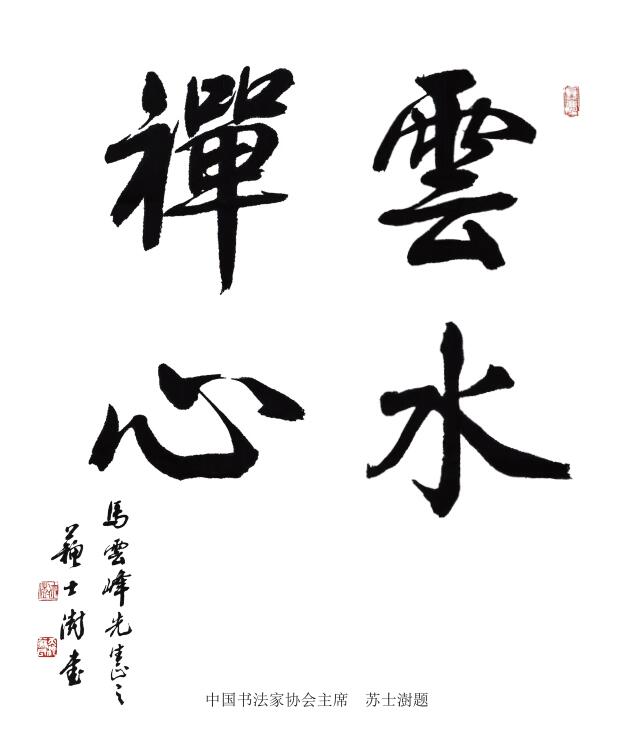 雲水
禪心
馬雲峰先生惠之
蘇士澍書
中国书法家协会主席　苏士澍题